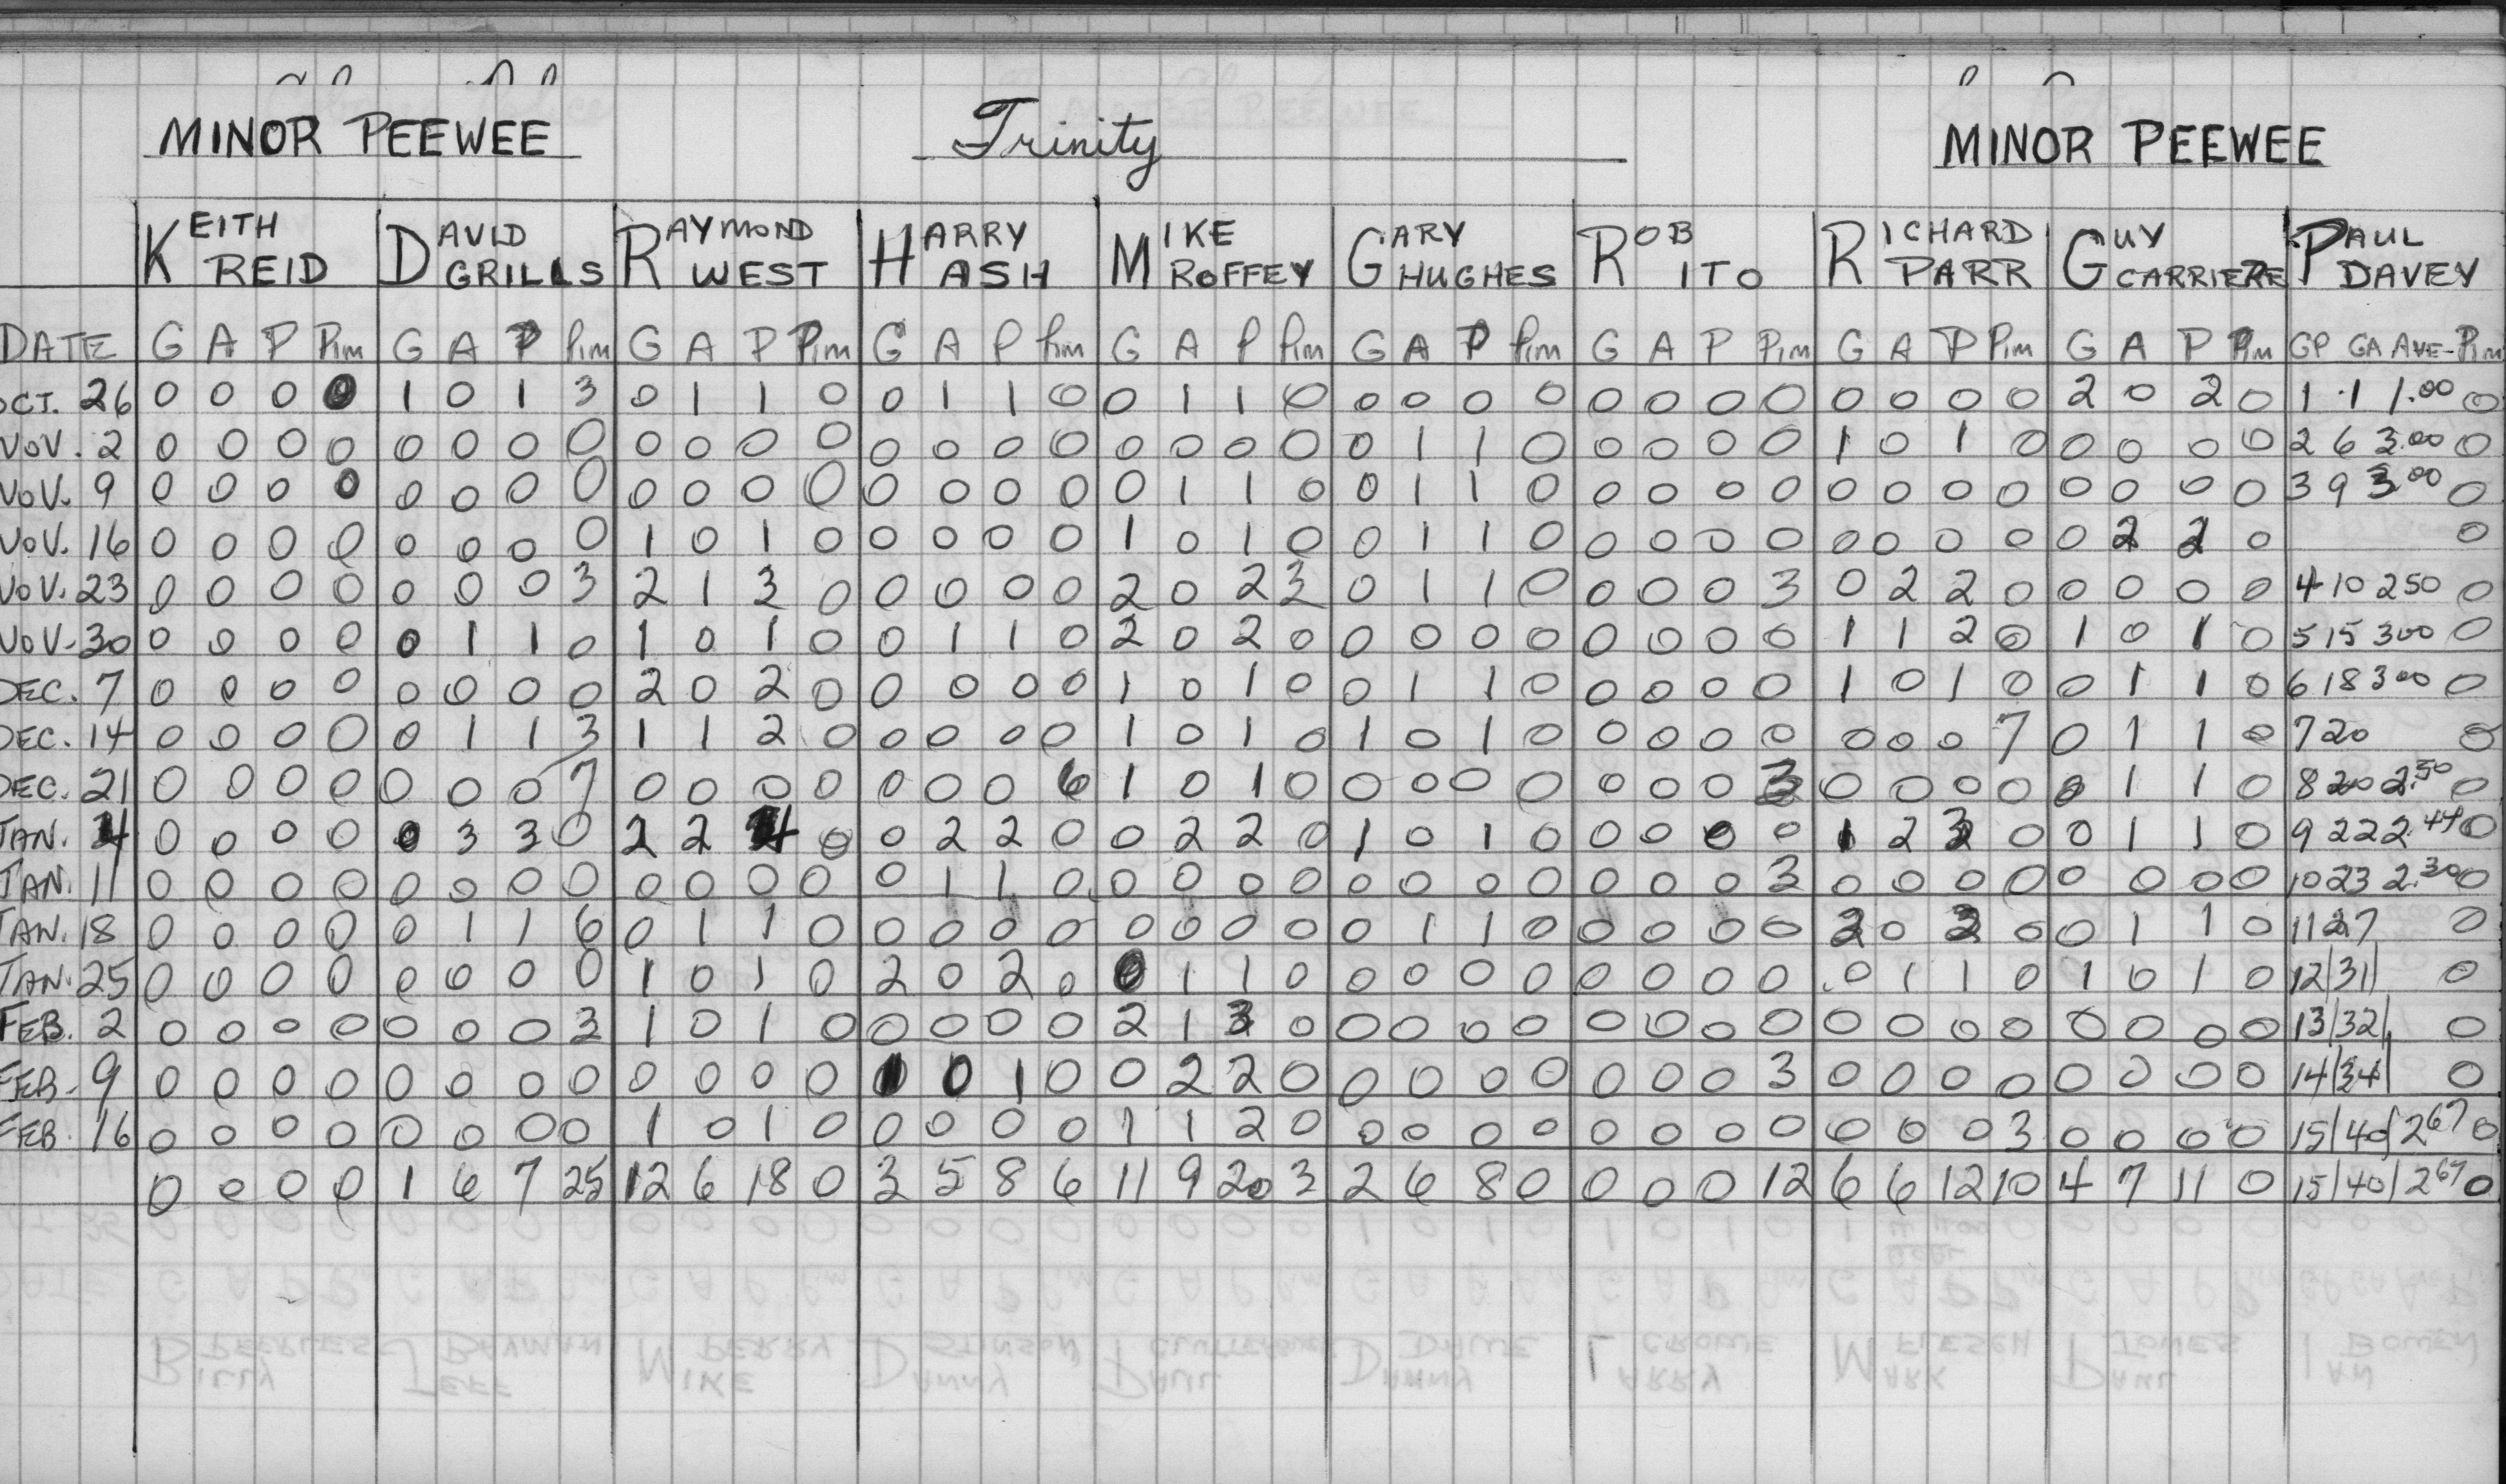 MINOR PEEWEE Trinity MINOR PEEWEE
KEITH REID DAVID GRILLS RAYMOND WEST HARRY ASH MIKE ROFFEY GARY HUGHES ROB ITO RICHARD PARR GUY CARRIERE PAUL DAVEY
DATE G A P Pim G A P Pim G A P Pim G A P Pim G A P Pim G A P Pim G A P Pim G A P Pim G A P Pim GP GA AVE- Pim
OCT. 26 0 0 0 0 1 0 1 3 0 1 1 0 0 1 1 0 0 1 1 0 0 0 0 0 0 0 0 0 0 0 0 0 2 0 2 0 1 1 1.00 0
NOV. 2 0 0 0 0 0 0 0 0 0 0 0 0 0 0 0 0 0 0 0 0 0 1 1 0 0 0 0 0 1 0 1 0 0 0 0 0 2 6 3.00 0
NOV. 9 0 0 0 0 0 0 0 0 0 0 0 0 0 0 0 0 0 1 1 0 0 1 1 0 0 0 0 0 0 0 0 0 0 0 0 0 3 9 3.00 0
NOV. 16 0 0 0 0 0 0 0 0 1 0 1 0 0 0 0 0 1 0 1 0 0 1 1 0 0 0 0 0 0 0 0 0 0 2 2 0 0
NOV. 23 0 0 0 0 0 0 0 3 2 1 3 0 0 0 0 0 2 0 2 3 0 1 1 0 0 0 0 3 0 2 2 0 0 0 0 0 4 10 250 0
NOV-30 0 0 0 0 0 1 1 0 1 0 1 0 0 1 1 0 2 0 2 0 0 0 0 0 0 0 0 0 1 1 2 0 1 0 1 0 5 15 300 0
DEC. 7 0 0 0 0 0 0 0 0 2 0 2 0 0 0 0 0 1 0 1 0 0 1 1 0 0 0 0 0 1 0 1 0 0 1 1 0 6 18 300 0
DEC. 14 0 0 0 0 0 1 1 3 1 1 2 0 0 0 0 0 1 0 1 0 1 0 1 0 0 0 0 0 0 0 0 7 0 1 1 0 7 20 0
DEC. 21 0 0 0 0 0 0 0 7 0 0 0 0 0 0 0 6 1 0 1 0 0 0 0 0 0 0 0 3 0 0 0 0 0 1 1 0 8 20 2.50 0
JAN. 4 0 0 0 0 0 3 3 0 2 2 4 0 0 2 2 0 0 2 2 0 1 0 1 0 0 0 0 0 1 2 3 0 0 1 1 0 9 22 2.44 0
JAN. 11 0 0 0 0 0 0 0 0 0 0 0 0 0 1 1 0 0 0 0 0 0 0 0 0 0 0 0 3 0 0 0 0 0 0 0 0 10 23 2.30 0
JAN. 18 0 0 0 0 0 1 1 6 0 1 1 0 0 0 0 0 0 0 0 0 0 1 1 0 0 0 0 0 2 0 2 0 0 1 1 0 11 27 0
JAN. 25 0 0 0 0 0 0 0 0 1 0 1 0 2 0 2 0 0 1 1 0 0 0 0 0 0 0 0 0 0 1 1 0 1 0 1 0 12/31/ 0
FEB. 2 0 0 0 0 0 0 0 3 1 0 1 0 0 0 0 0 2 1 3 0 0 0 0 0 0 0 0 0 0 0 0 0 0 0 0 0 13/32/ 0
FEB- 9 0 0 0 0 0 0 0 0 0 0 0 0 1 0 1 0 0 2 2 0 0 0 0 0 0 0 0 3 0 0 0 0 0 0 0 0 14/34/ 0
FEB. 16 0 0 0 0 0 0 0 0 1 0 1 0 0 0 0 0 1 1 2 0 0 0 0 0 0 0 0 0 0 0 0 3 0 0 0 0 15/40/267 0
0 0 0 0 1 6 7 25 12 6 18 0 3 5 8 6 11 9 20 3 2 6 8 0 0 0 0 12 6 6 12 10 4 7 11 0 15/40/267 0